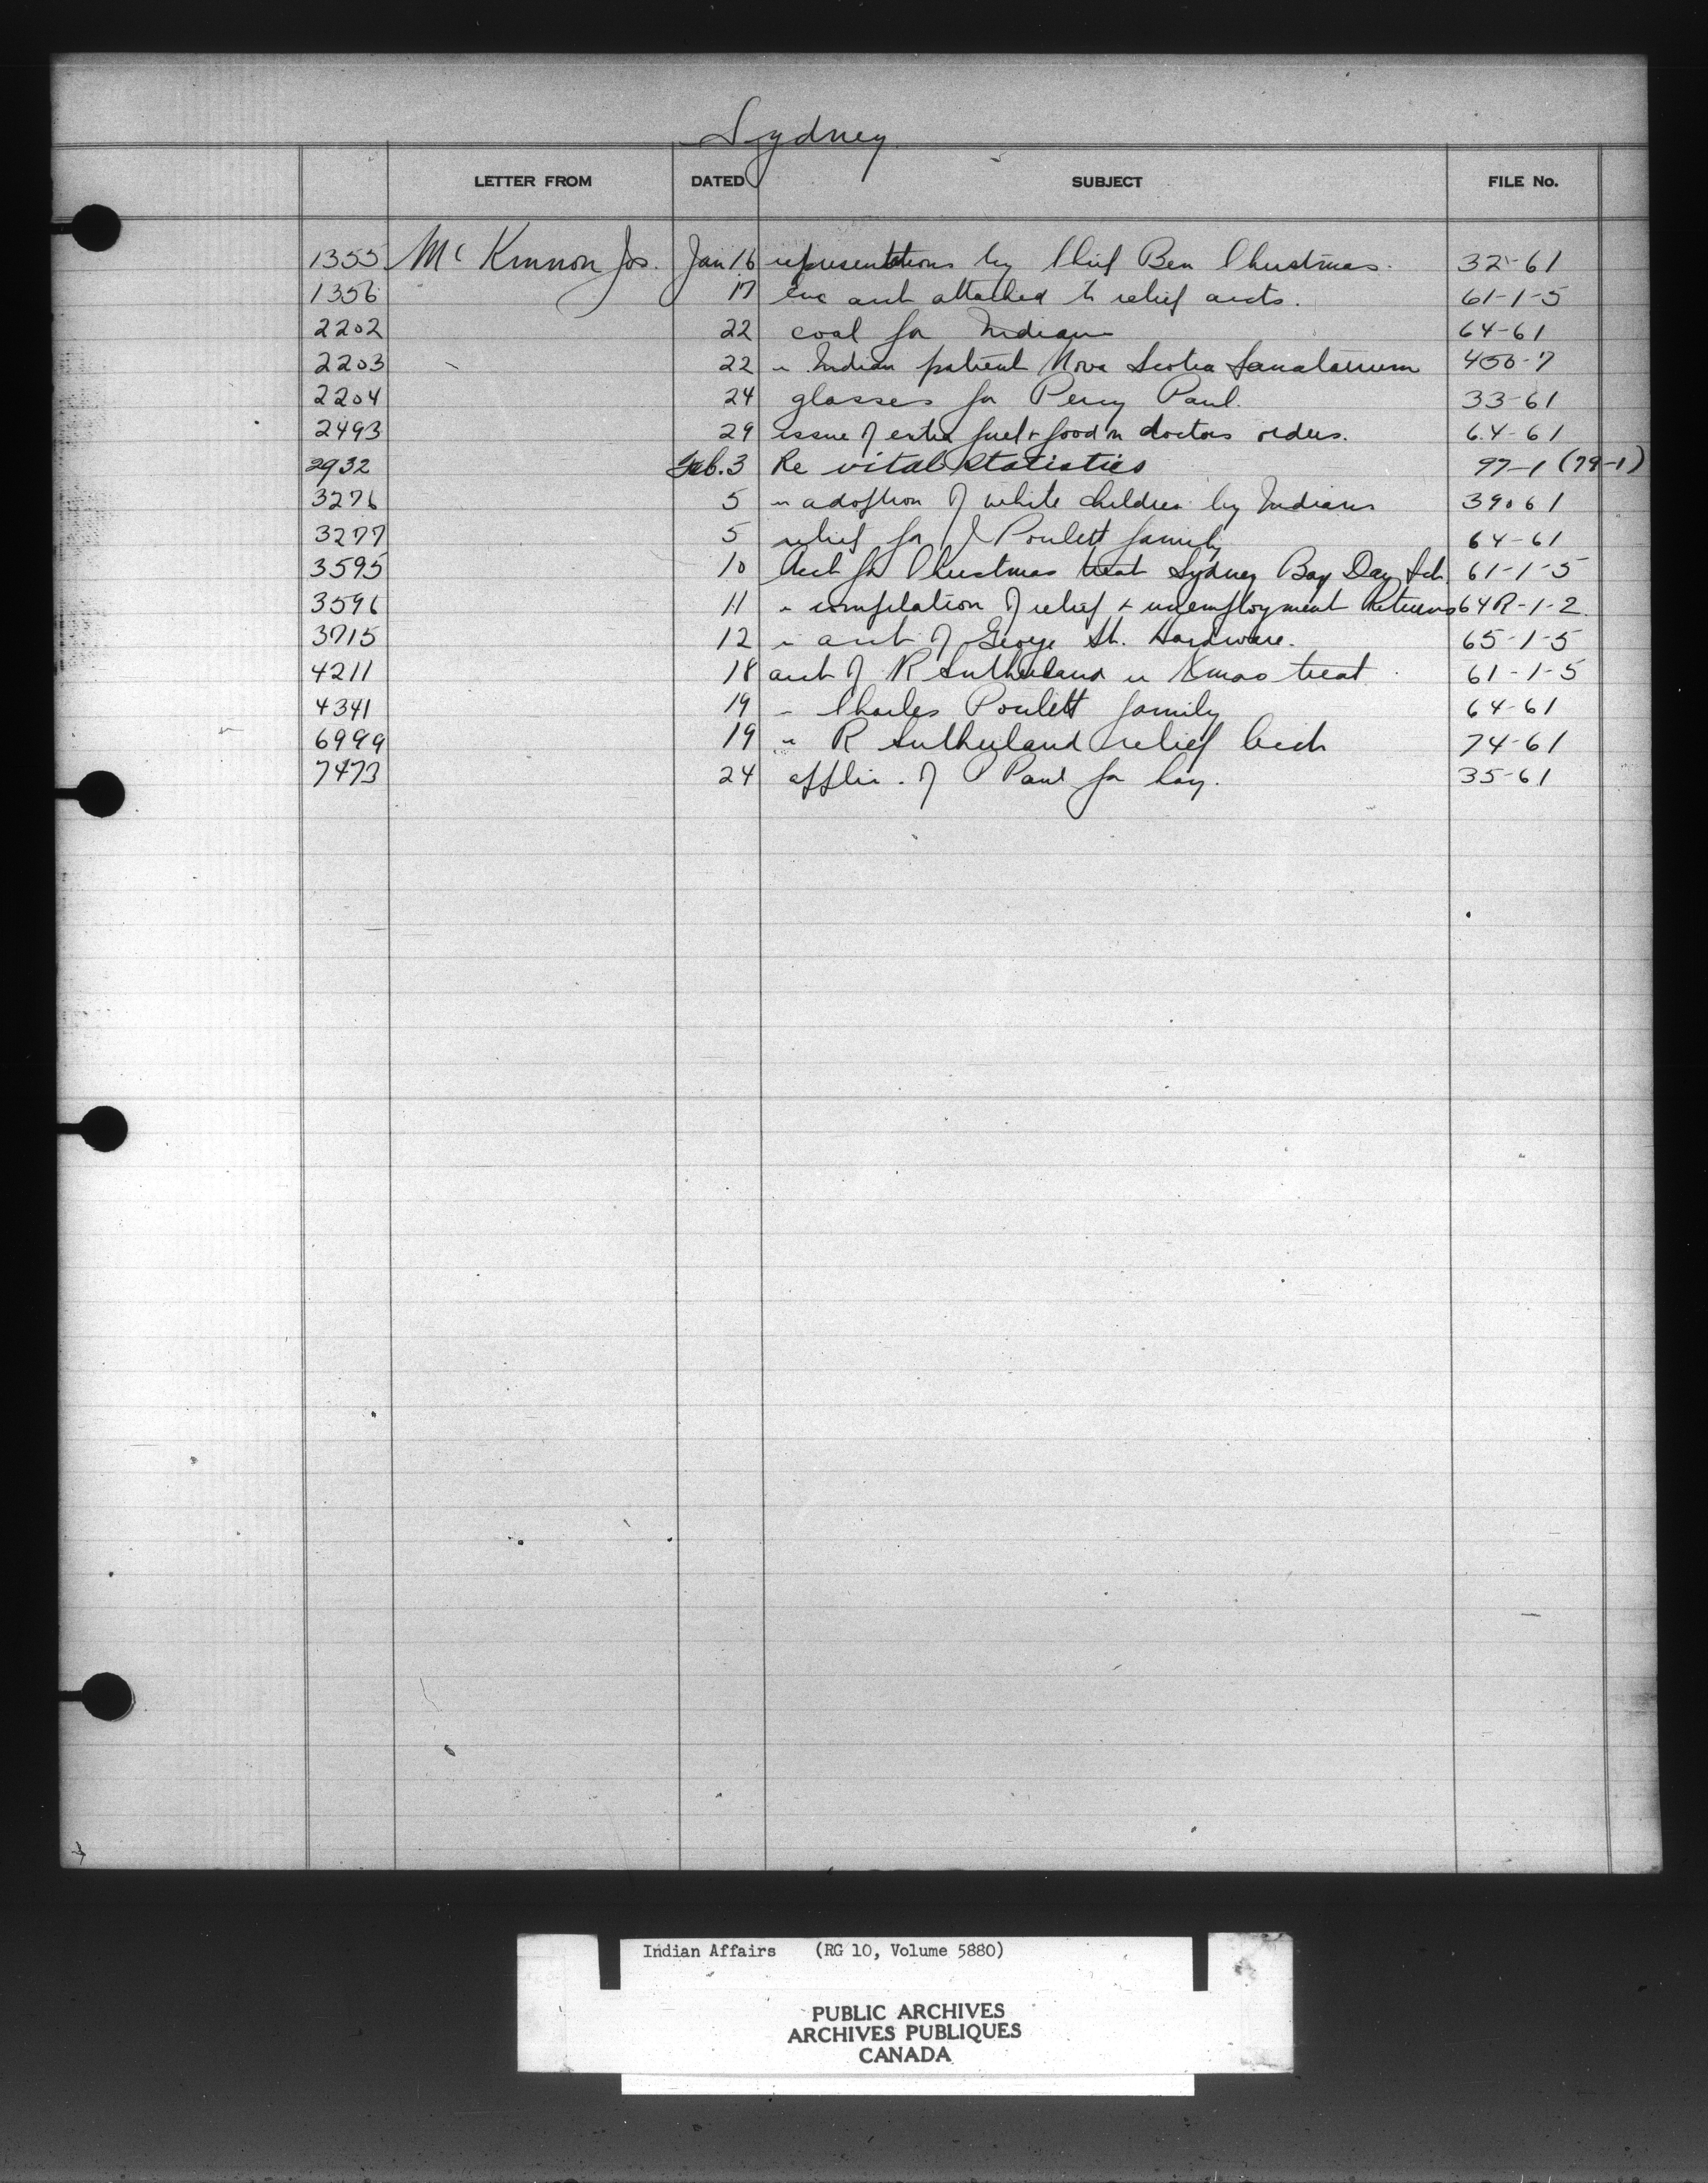 Sydney
LETTER FROM DATED SUBJECT FILE No.
1355 Mc Kinnon Jos. Jan 16 representations by Chief Ben Christmas. 32-61
1356 17 enc acct attached to relief accts. 61-1-5
2202 22 coal for Indians 64-61
2203 22 " Indian patient Nova Scotia Sanatarium 450-7
2204 24 glasses for Percy Paul. 33-61
2493 29 issue of extra fuel & food on doctors orders. 64-61
2932 Feb. 3 Re vital statistics 97-1 (79-1)
3276 5 " adoption of white children by Indians 39-61
3277 5 relief for J Poulett family 64-61
3595 10 Acct for Christmas treat Sydney Bay Day Sch. 61-1-5
3596 11 " compilation of relief & unemployment Returns 64R-1-2
3715 12 " acct of George St. Hardware. 65-1-5
4211 18 acct of R Sutherland re Xmas treat 61-1-5
4341 19 " Charles Poulett family 64-61
6999 19 " R Sutherland relief 74-61
7473 24 applic. of P Paul for hay. 35-61
Indian Affairs (RG 10, Volume 5880)
PUBLIC ARCHIVES
ARCHIVES PUBLIQUES
CANADA